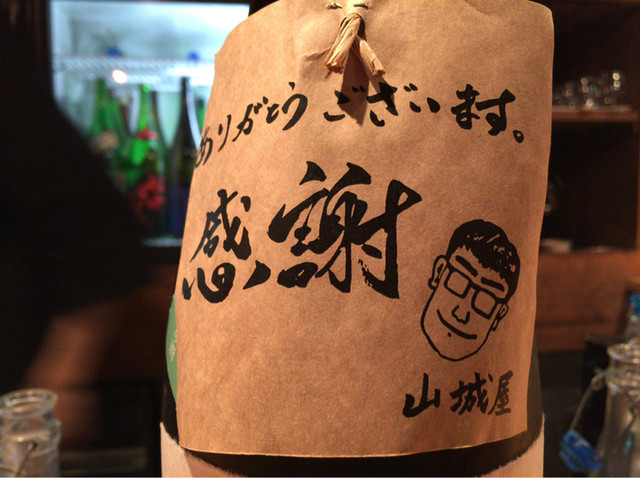 ありがとうございます。
感謝
山城屋